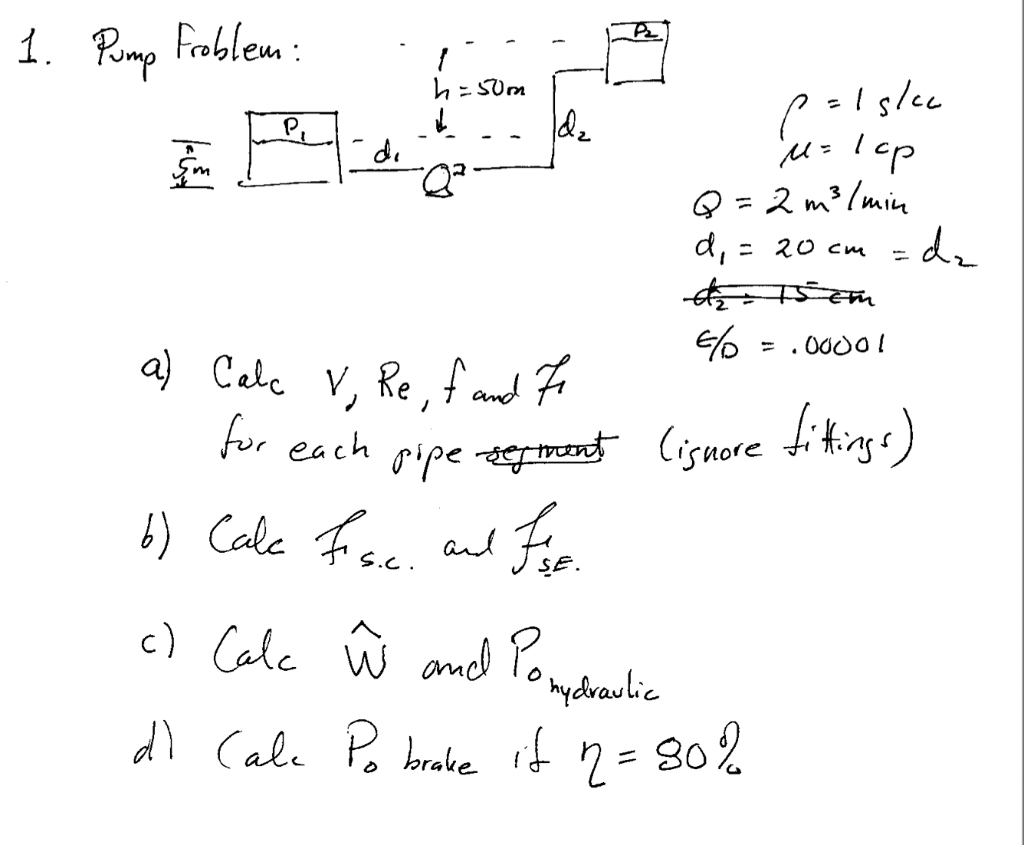 1. Pump Problem:
P2
h = 50m
P1
d1
d2
5m
ρ = 1 g/cc
μ = 1 cp
Q = 2 m³/min
d1 = 20 cm = d2
d2 = 15 cm
ε/D = .00001
a) Calc V, Re, f and F
for each pipe segment (ignore fittings)
b) Calc F s.c. and F S.E.
c) Calc Ŵ and Po hydraulic
d) Calc Po brake if η = 80%